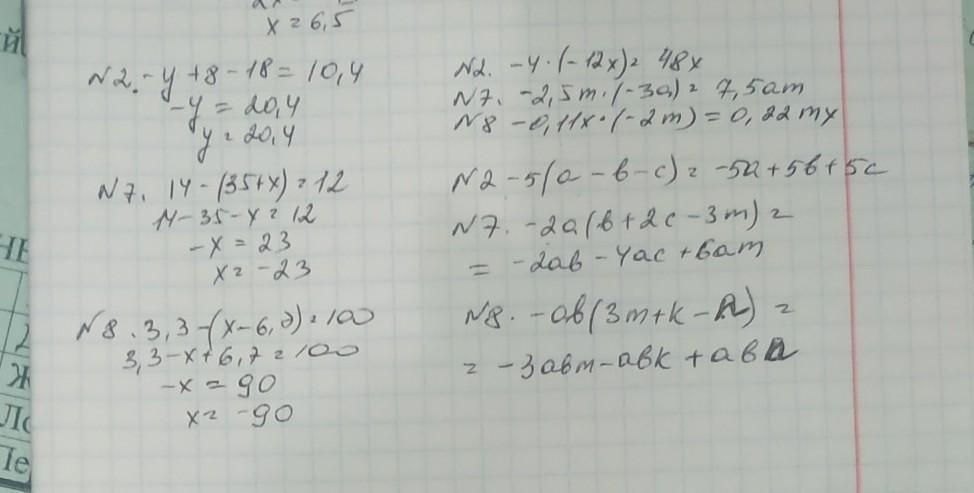 x = 6,5
N2. -y + 8 - 18 = 10,4
-y = 20,4
y = 20,4
N7. 14 - (35+x) = 12
14 - 35 - x = 12
-x = 23
x = -23
N8. 3,3 - (x - 6,7) = 100
3,3 - x + 6,7 = 100
-x = 90
x = -90
N2. -4 · (-12x) = 48x
N7. -2,5m · (-3a) = 7,5am
N8 -0,11x · (-2m) = 0,22mx
N2 -5(a - b - c) = -5a + 5b + 5c
N7. -2a(b + 2c - 3m) =
= -2ab - 4ac + 6am
N8. -ab(3m + k - n) =
= -3abm - abk + abn